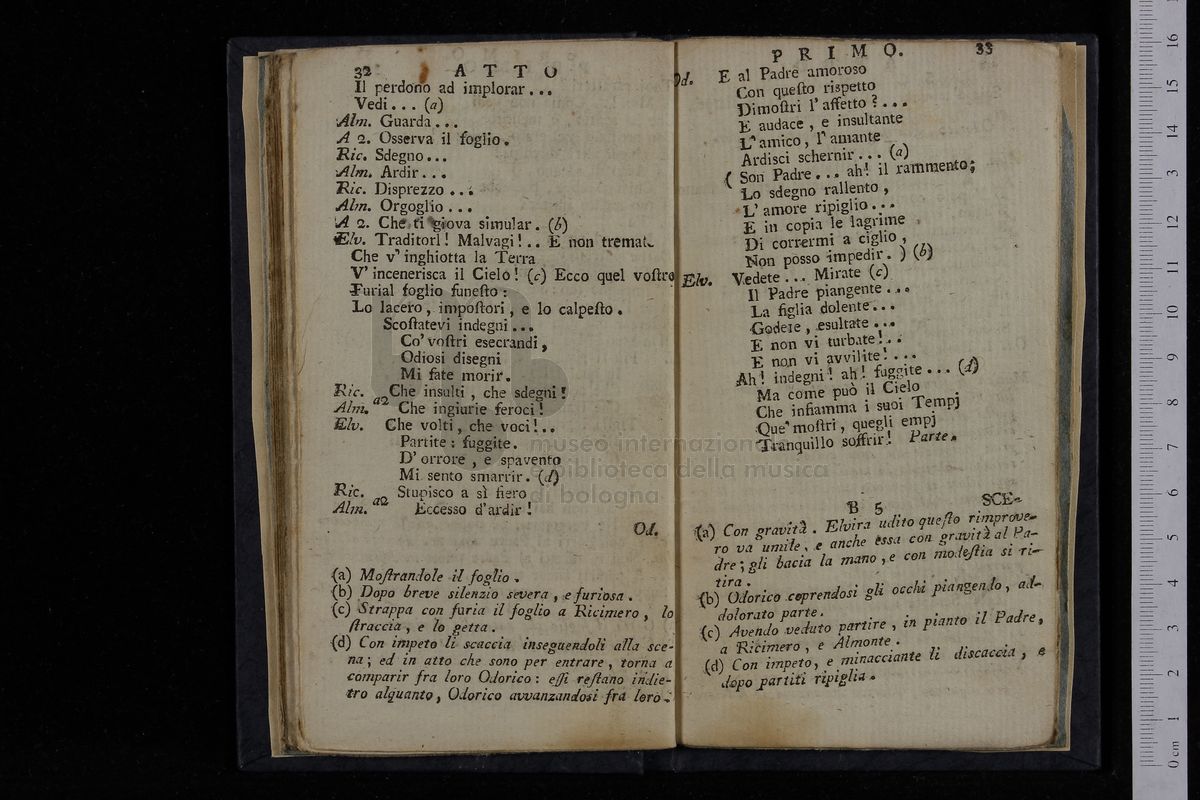 32 ATTO
Il perdono ad implorar...
Vedi... (a)
Alm. Guarda...
A 2. Osserva il foglio.
Ric. Sdegno...
Alm. Ardir...
Ric. Disprezzo...
Alm. Orgoglio...
A 2. Che ti giova simular. (b)
Elv. Traditori! Malvagi!.. E non tremate
Che v' inghiotta la Terra
V' incenerisca il Cielo! (c) Ecco quel voſtro
Furial foglio funeſto:
Lo lacero, impoſtori, e lo calpeſto.
Scoſtatevi indegni...
Co' voſtri esecrandi,
Odiosi disegni
Mi fate morir.
Ric. a2 Che insulti, che sdegni!
Alm. Che ingiurie feroci!
Elv. Che volti, che voci!..
Partite: fuggite.
D' orrore, e spavento
Mi sento smarrir. (d)
Ric. a2 Stupisco a sì fiero
Alm. Eccesso d'ardir!
Od.
(a) Moſtrandole il foglio.
(b) Dopo breve silenzio severa, e furiosa.
(c) Strappa con furia il foglio a Ricimero, lo
ſtraccia, e lo getta.
(d) Con impeto li scaccia inseguendoli alla sce-
na; ed in atto che sono per entrare, torna a
comparir fra loro Odorico: eſſi reſtano indie-
tro alquanto, Odorico avvanzandosi fra loro.
PRIMO. 33
Od. E al Padre amoroso
Con queſto rispetto
Dimoſtri l' affetto?...
E audace, e insultante
L' amico, l' amante
Ardisci schernir... (a)
( Son Padre... ah! il rammento;
Lo sdegno rallento,
L' amore ripiglio...
E in copia le lagrime
Di corrermi a ciglio,
Non posso impedir. ) (b)
Elv. Vedete... Mirate (c)
Il Padre piangente...
La figlia dolente...
Godete, esultate...
E non vi turbate!..
E non vi avvilite!...
Ah! indegni! ah! fuggite... (d)
Ma come può il Cielo
Che infiamma i suoi Tempj
Que' moſtri, quegli empj
Tranquillo soffrir! Parte.
B 5 SCE-
(a) Con gravità. Elvira udito queſto rimprove-
ro va umile, e anche essa con gravità al Pa-
dre; gli bacia la mano, e con modeſtia si ri-
tira.
(b) Odorico coprendosi gli occhi piangendo, ad-
dolorato parte.
(c) Avendo veduto partire, in pianto il Padre,
a Ricimero, e Almonte.
(d) Con impeto, e minacciante li discaccia, e
dopo partiti ripiglia.
museo internazionale
e biblioteca della musica
di bologna
0 cm 1 2 3 4 5 6 7 8 9 10 11 12 13 14 15 16